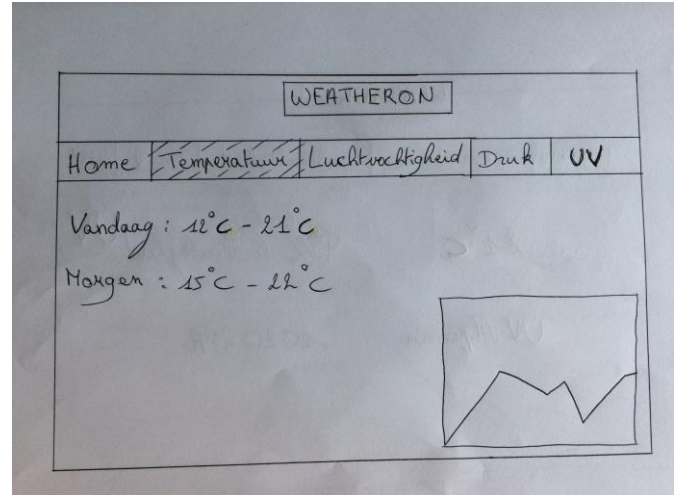 WEATHERON
Home Temperatuur Luchtvochtigheid Druk UV
Vandaag : 12°C - 21°C
Morgen : 15°C - 22°C